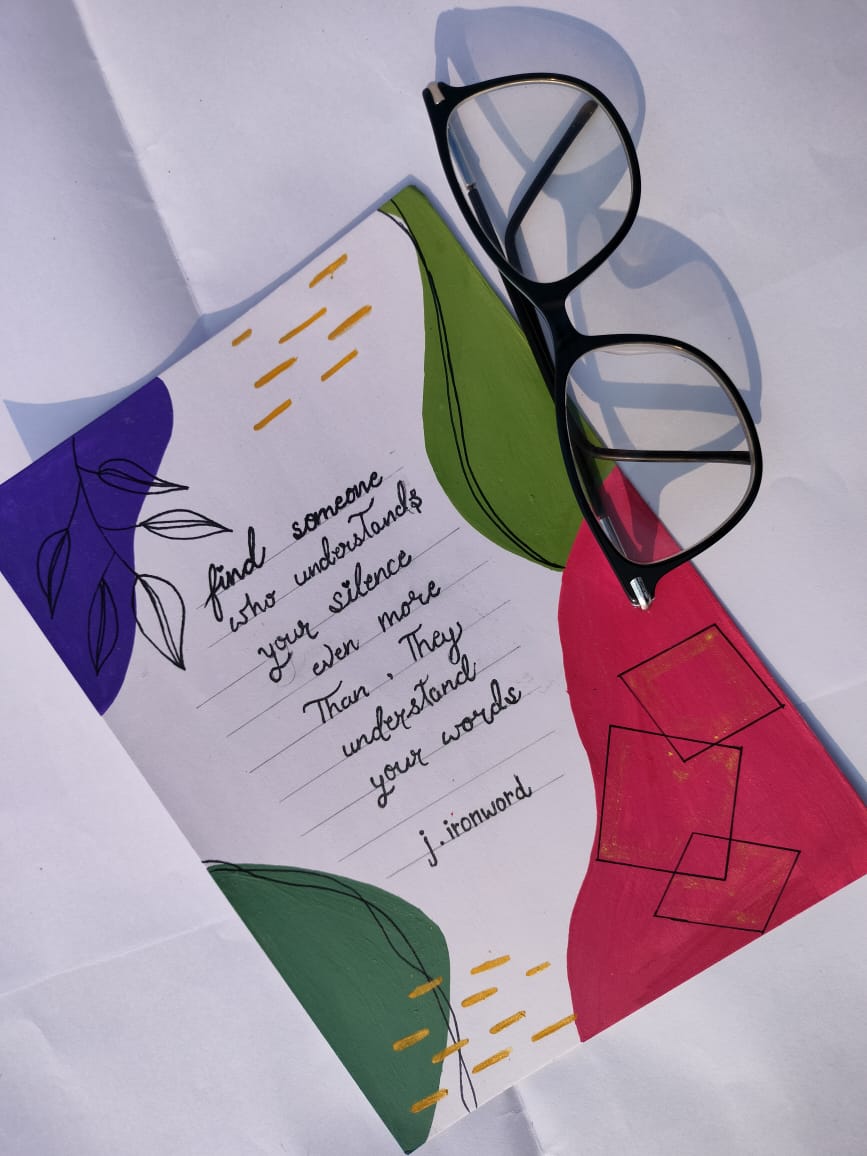 find someone
who understands
your silence
even more
Than, They
understand
your words
j. ironword